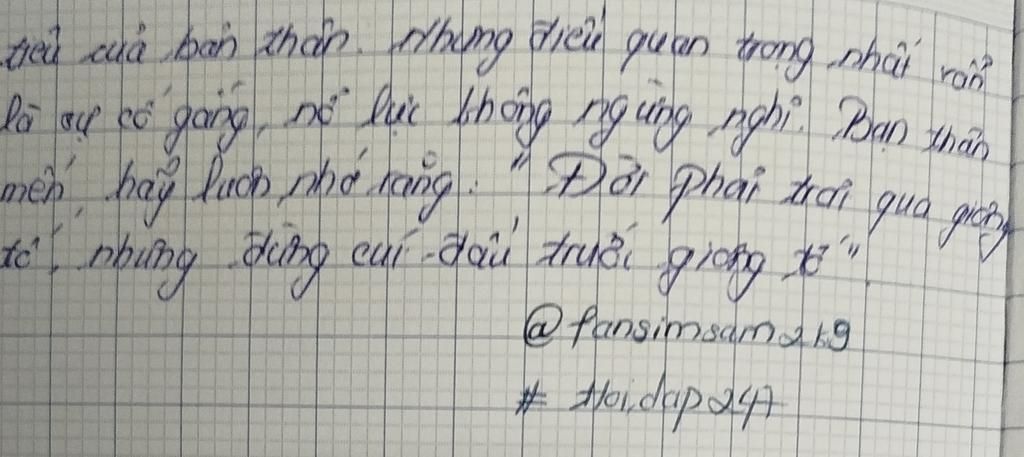 tiêu của bản thân. Nhưng điều quan trọng nhất vẫn
là sự cố gắng, nỗ lực không ngừng nghỉ. Bạn thân
mến, hãy luôn nhớ rằng: "Đời phải trải qua giông
tố, nhưng đừng cúi đầu trước giông tố"
@fansimsam219
# Hoidap247